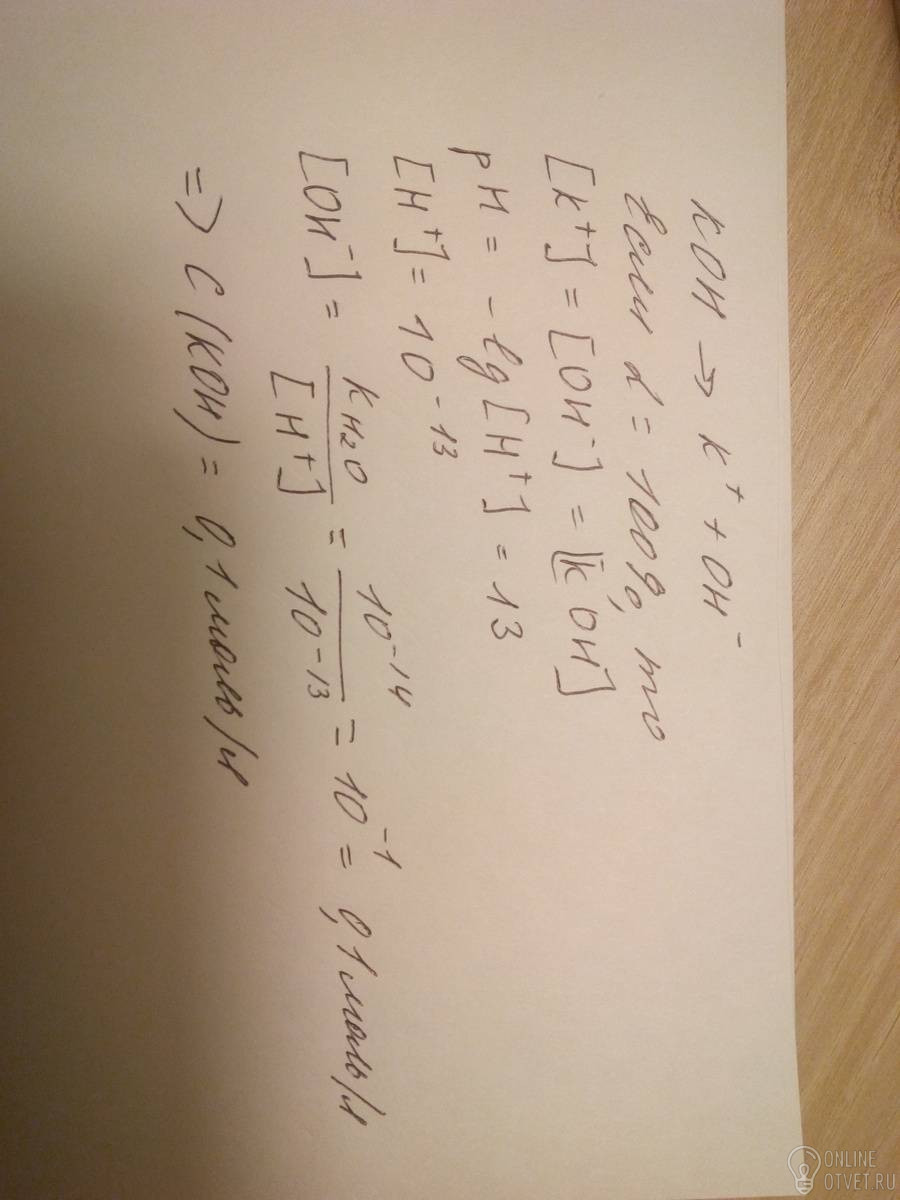 KOH → K⁺ + OH⁻
Если α = 100%, то
[K⁺] = [OH⁻] = [KOH]
pH = -lg[H⁺] = 13
[H⁺] = 10⁻¹³
[OH⁻] = K H₂O / [H⁺] = 10⁻¹⁴ / 10⁻¹³ = 10⁻¹ = 0,1 моль/л
=> C(KOH) = 0,1 моль/л
ONLINE
OTVET.RU